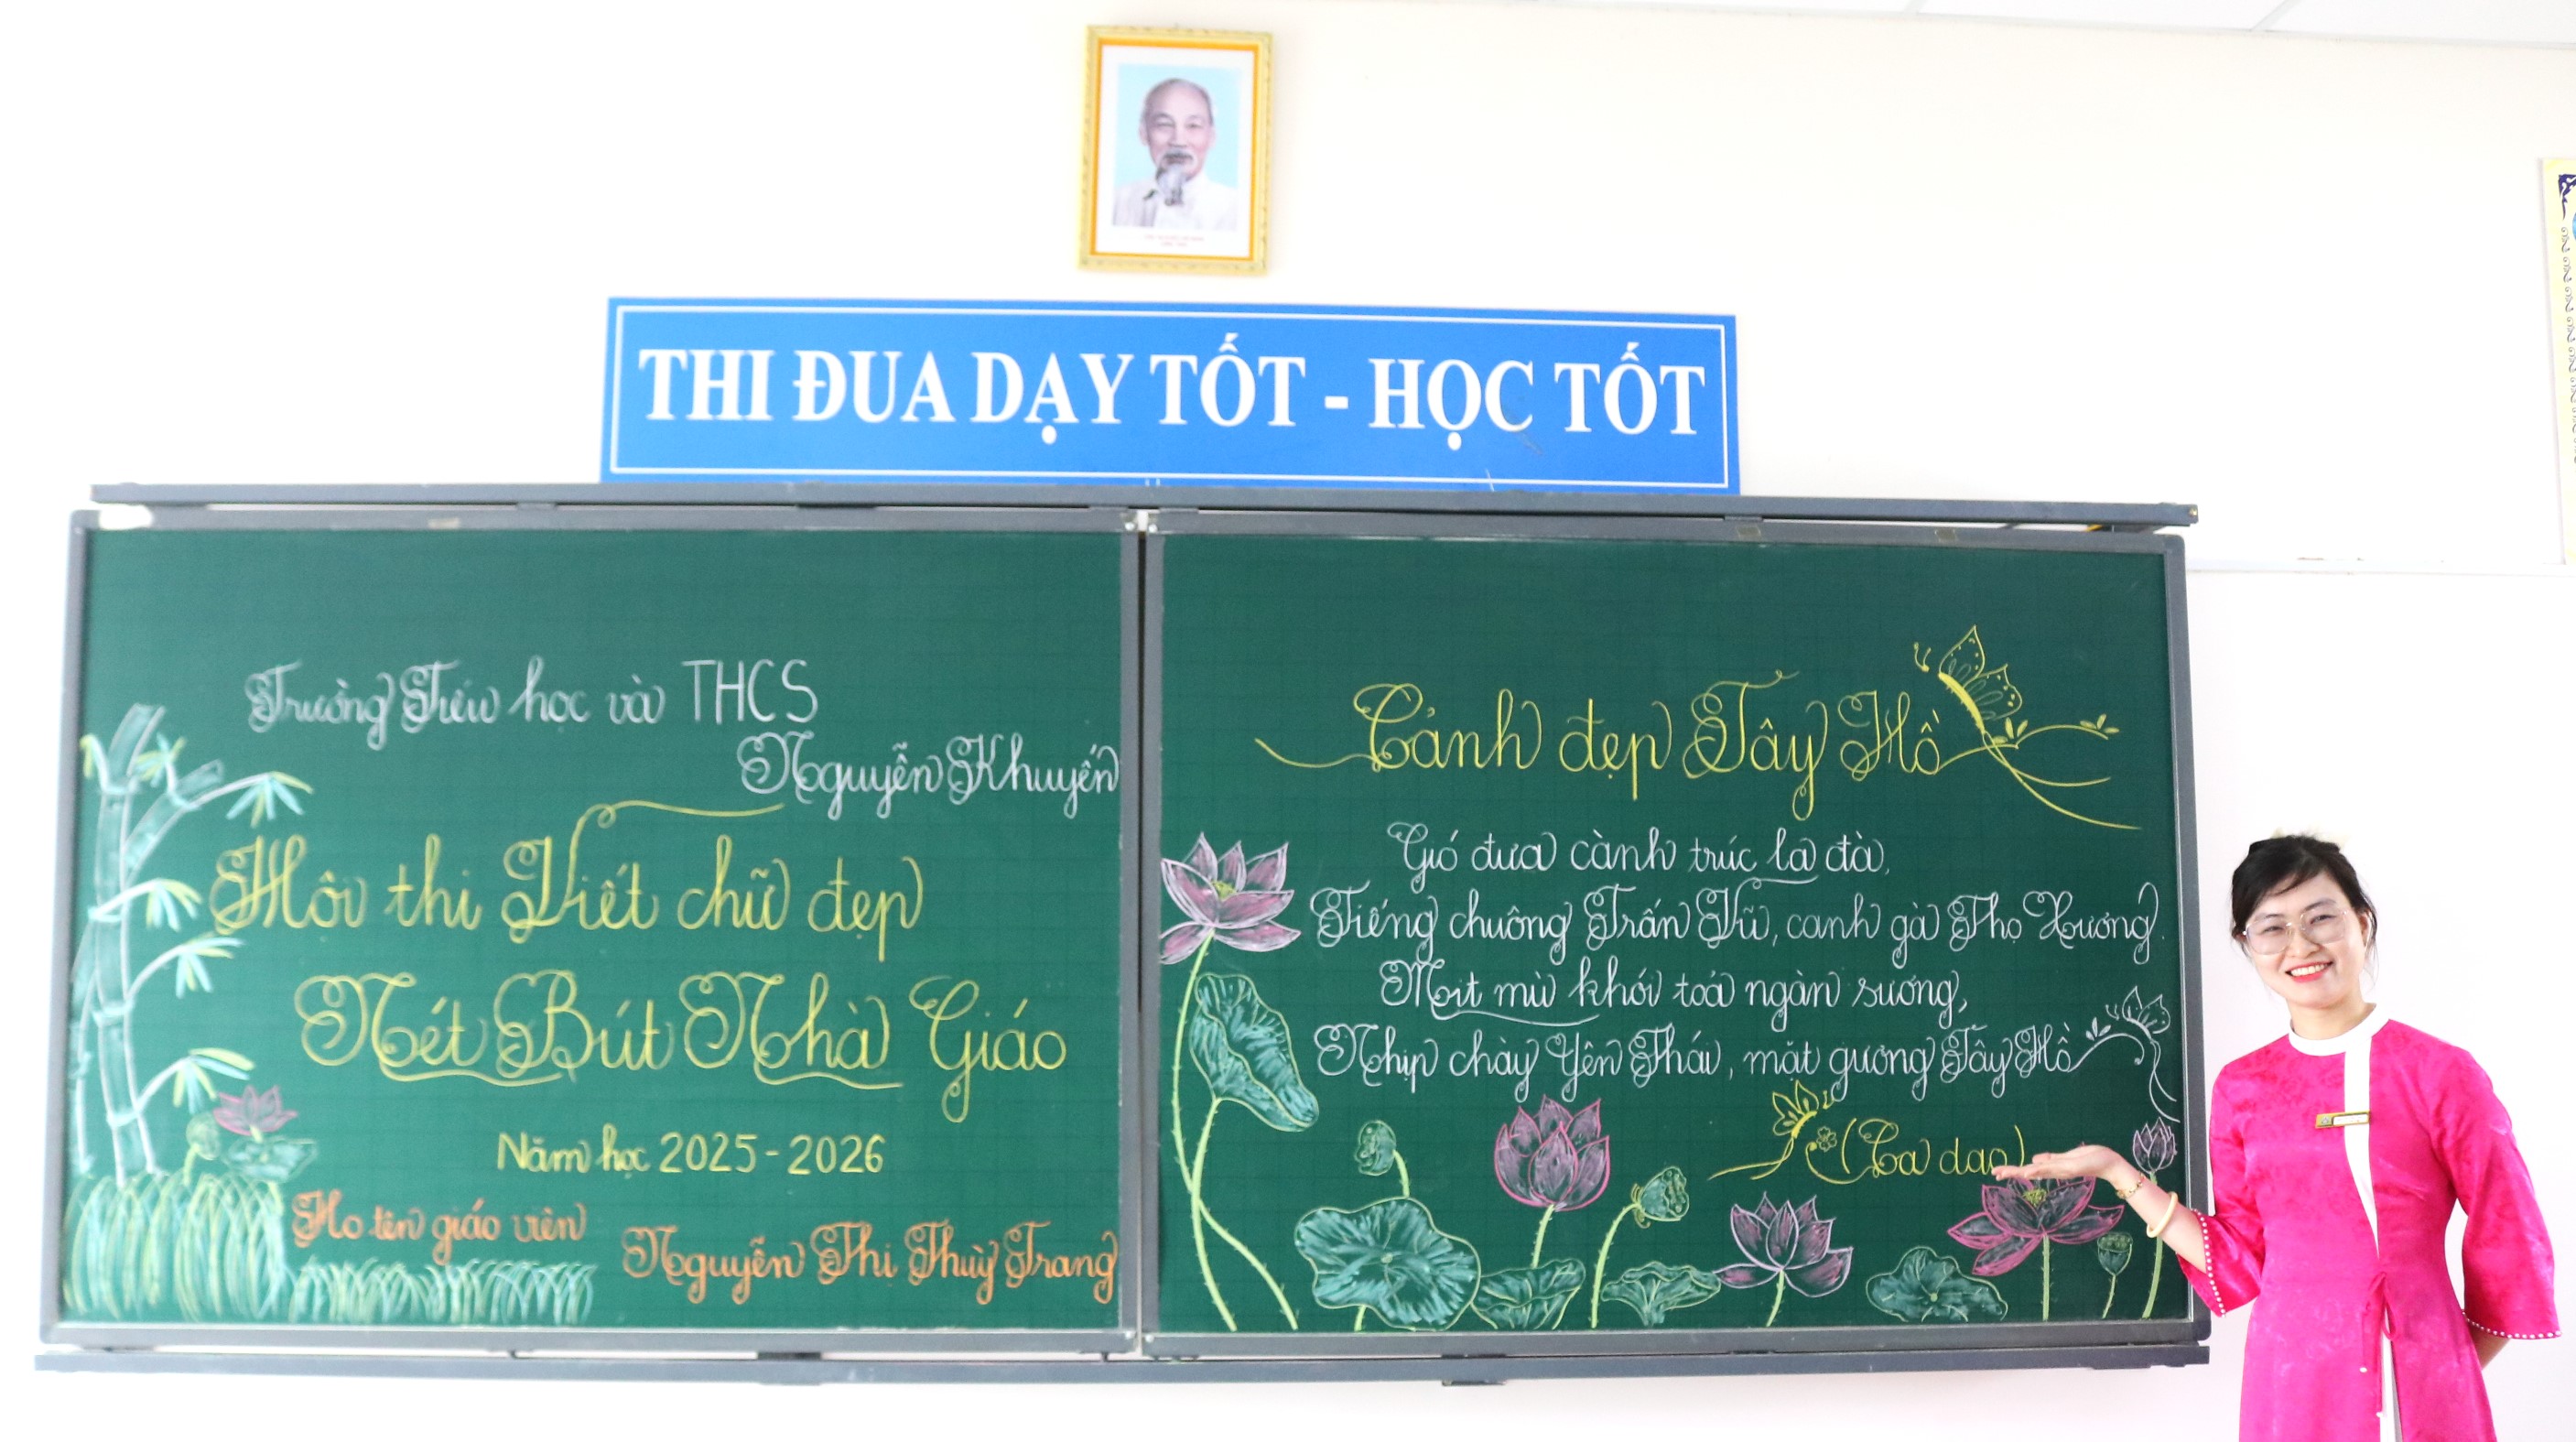 THI ĐUA DẠY TỐT - HỌC TỐT
Trường Tiểu học và THCS
Nguyễn Khuyến
Hội thi Viết chữ đẹp
Nét Bút Nhà Giáo
Năm học 2025-2026
Họ tên giáo viên
Nguyễn Thị Thuỳ Trang
Cảnh đẹp Tây Hồ
Gió đưa cành trúc la đà,
Tiếng chuông Trấn Vũ, canh gà Thọ Xương.
Mịt mù khói toả ngàn sương,
Nhịp chày Yên Thái, mặt gương Tây Hồ
(Ca dao)